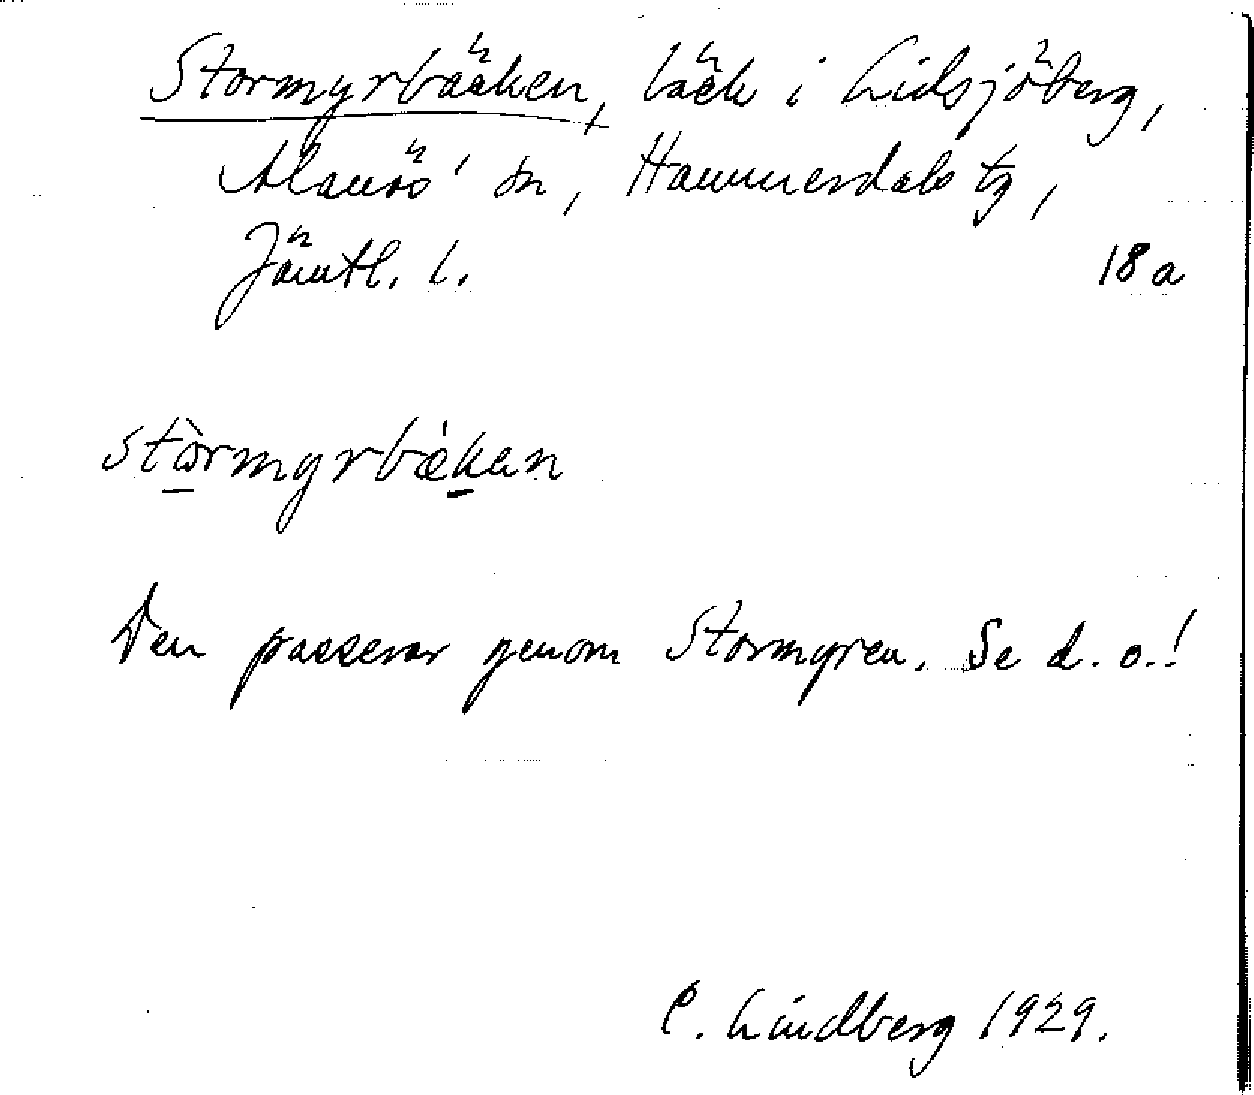 Stormyrbäcken, bäck i Lidsjöberg,
Alanäs' sn, Hammerdals tg,
Jämtl. l.
18 a
stòrmyrbækan
Den passerar genom Stormyren. Se d. o.!
C. Lindberg 1929.